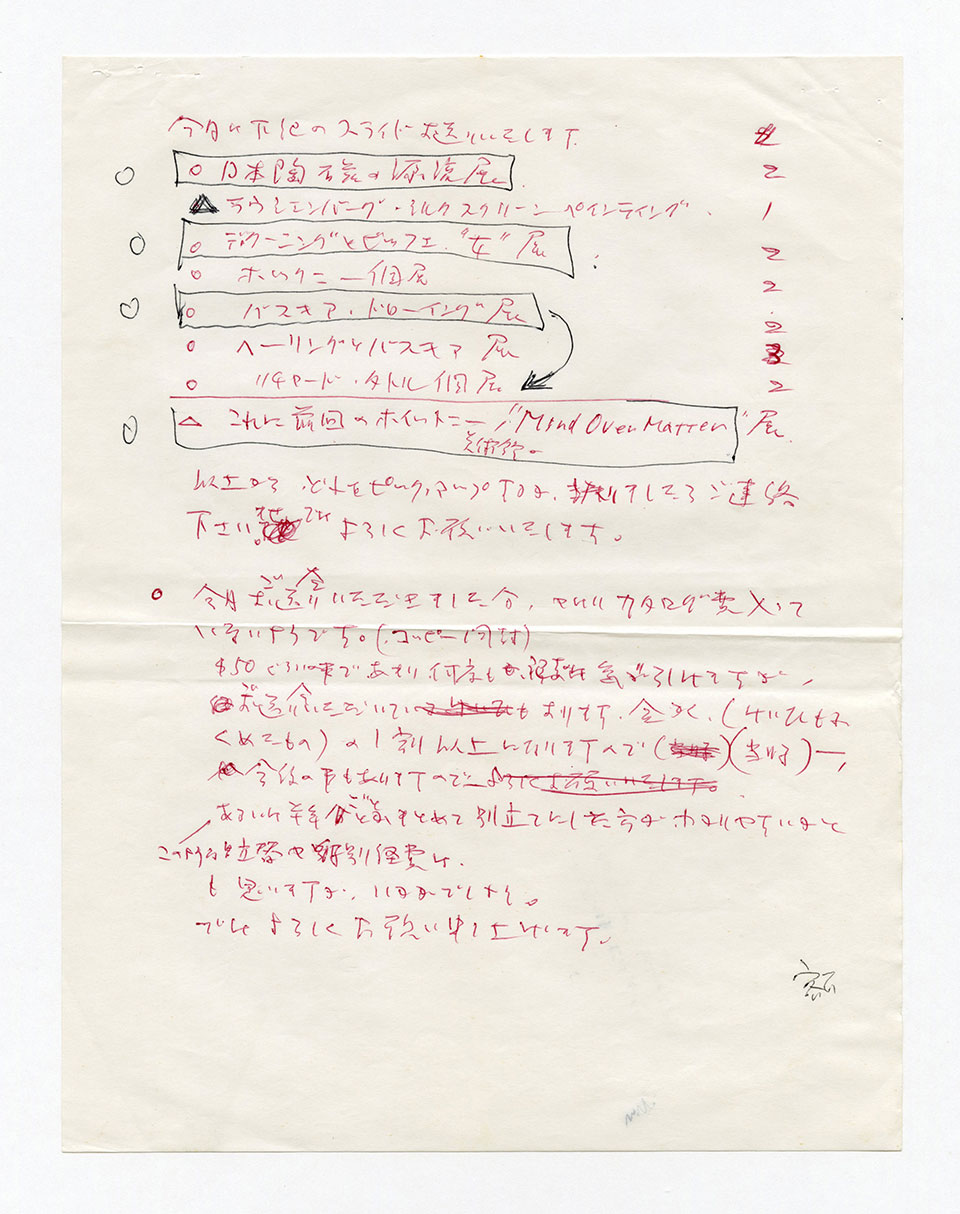 今月は下記のスライドお送りいたします。
○ 日本陶磁の源流展 2
△ ラウシェンバーグ・シルクスクリーンペインティング 1
○ デクーニングとビッフェ "女" 展 2
○ ホックニー個展 2
○ バスキア・ドローイング展 2
○ ヘーリングとバスキア展 3
○ リチャード・タトル個展 2
△ これに前回のホイットニー "Mind Over Matter" 展
美術館。
以上から、どれをピックアップするか、ましたらご連絡
下さいませ。ではよろしくお願いいたします。
○ 今月ご送金いただきました分、やはりカタログ費入って
いないようです。(コピー同封)
$50 ぐらいの事であまり何度も 気が引けますが、
ご送金いただいて おります 金がく、(
くめたもの) の1割以上になりますので
今後の事もありますので
あるいは半年分ごとまとめて別立てにした方がわかりやすいかと
このような立替や特別経費は、
も思いますが、いかがでしょう。
ではよろしくお願い申し上げます。